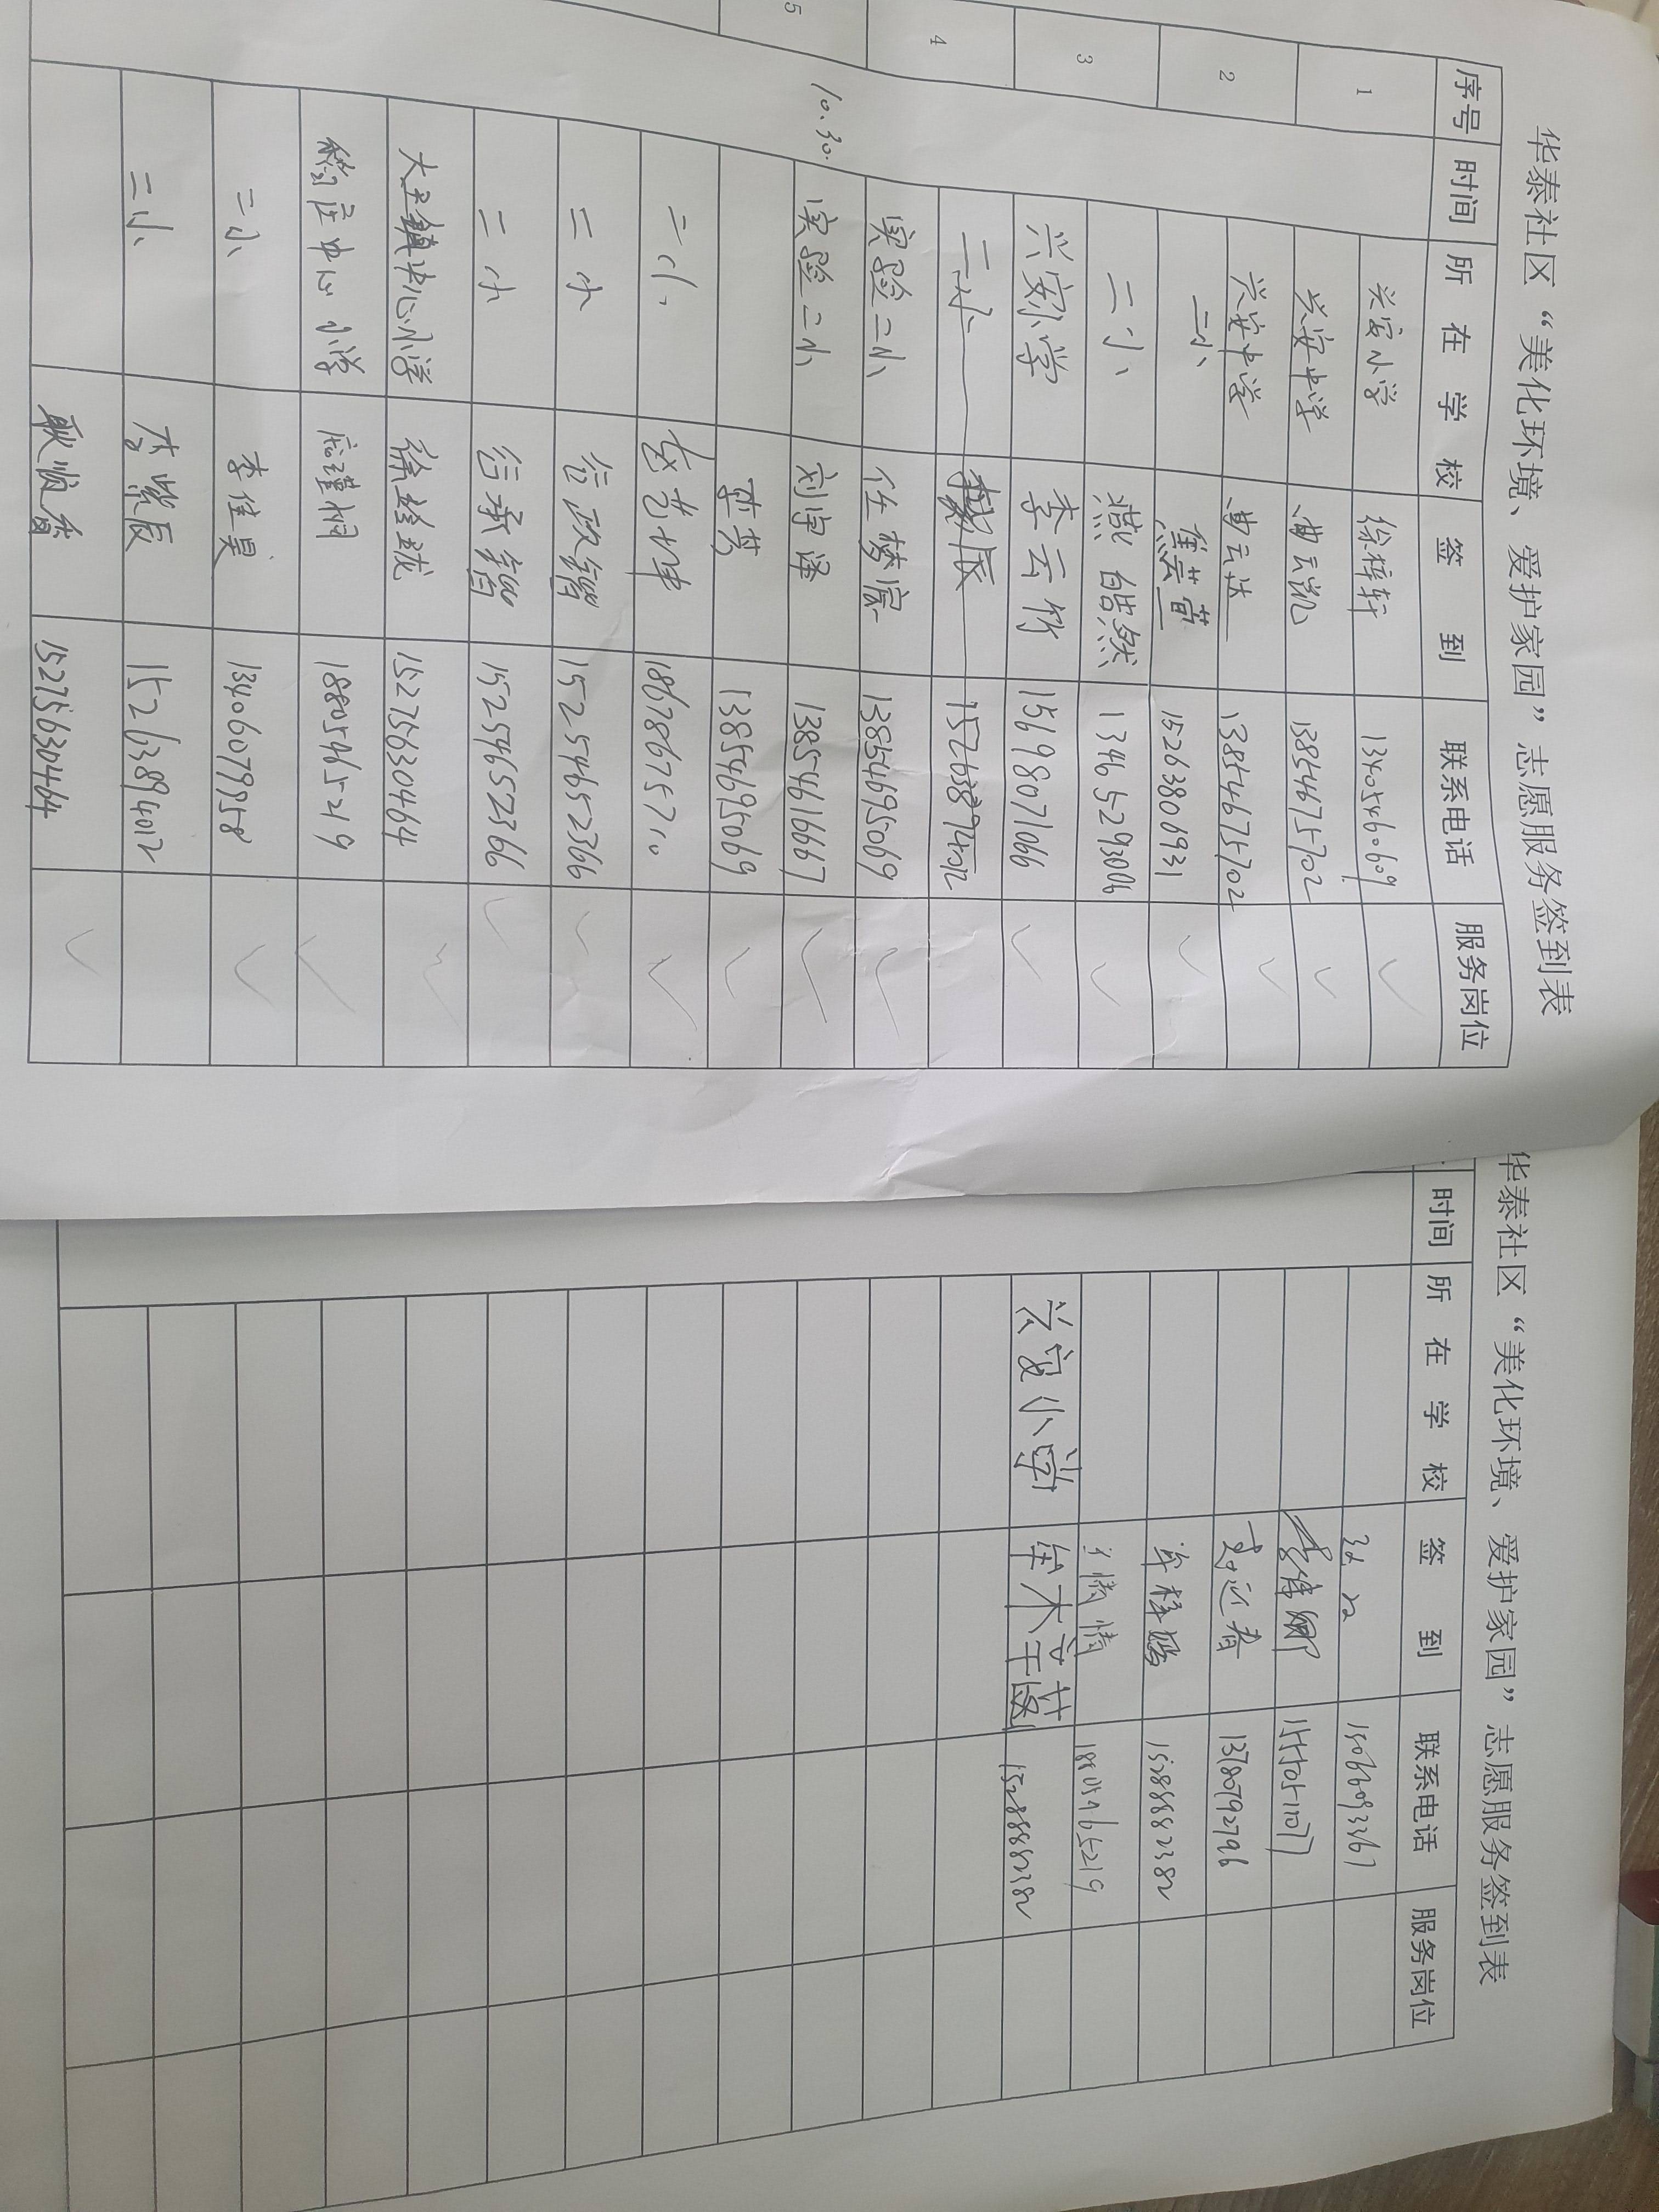 华泰社区“美化环境、爱护家园”志愿服务签到表
序号 时间 所在学校 签到 联系电话 服务岗位
1 兴安小学 徐梓轩 13405460609
兴安中学 曲云凯 13854675702
2 兴安中学 曲云 13854675702
二小 焦芸萱 15263806931
3 二小 燕皓然 13465293006
兴安小学 李云竹 15698071066
4 二小
实验二小 任梦宸 13854695069
5 10.30. 实验二小 刘宇泽 13854616667
李芳 13854695069
二小
二小 15254652366
二小 15254652366
大王镇中心小学 15275630464
中心小学 18805465219
二小 李佳昊 13406079958
二小 李紫辰 15263894012
耿 15275630464
华泰社区“美化环境、爱护家园”志愿服务签到表
时间 所在学校 签到 联系电话 服务岗位
15066093367
13780792796
15288882382
情情 18805465219
兴安小学 15288882382